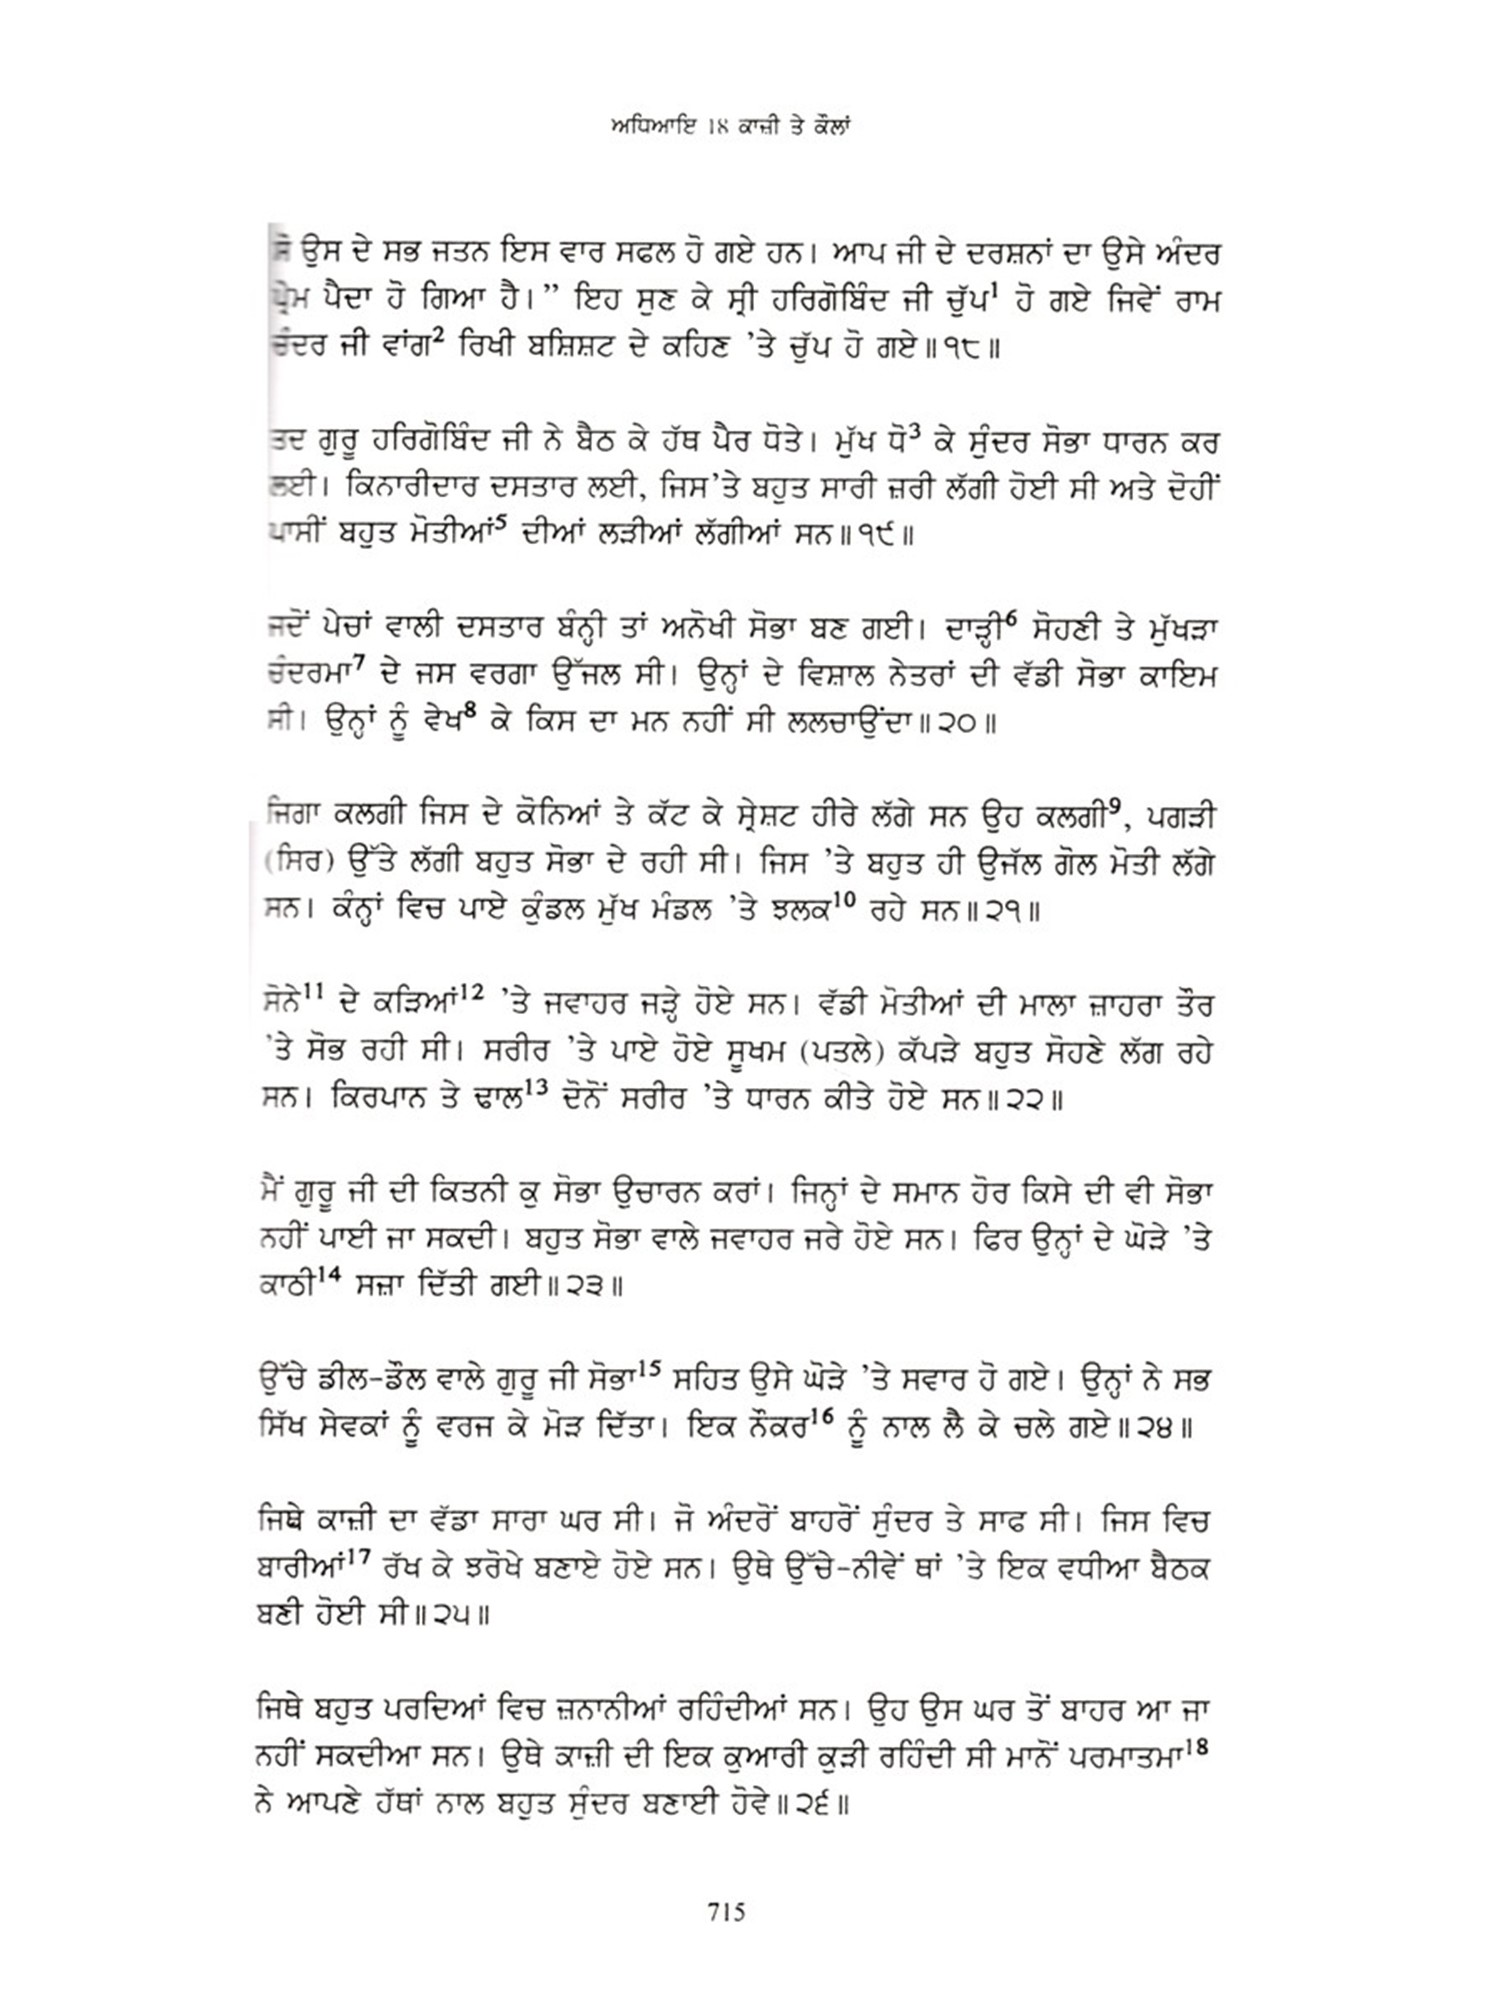 ਅਧਿਆਇ 18 ਕਾਜ਼ੀ ਤੇ ਕੌਲਾਂ
ਸੋ ਉਸ ਦੇ ਸਭ ਜਤਨ ਇਸ ਵਾਰ ਸਫਲ ਹੋ ਗਏ ਹਨ। ਆਪ ਜੀ ਦੇ ਦਰਸ਼ਨਾਂ ਦਾ ਉਸੇ ਅੰਦਰ
ਪ੍ਰੇਮ ਪੈਦਾ ਹੋ ਗਿਆ ਹੈ।” ਇਹ ਸੁਣ ਕੇ ਸ੍ਰੀ ਹਰਿਗੋਬਿੰਦ ਜੀ ਚੁੱਪ¹ ਹੋ ਗਏ ਜਿਵੇਂ ਰਾਮ
ਚੰਦਰ ਜੀ ਵਾਂਗ² ਰਿਖੀ ਬਸ਼ਿਸ਼ਟ ਦੇ ਕਹਿਣ ’ਤੇ ਚੁੱਪ ਹੋ ਗਏ॥੧੮॥
ਤਦ ਗੁਰੂ ਹਰਿਗੋਬਿੰਦ ਜੀ ਨੇ ਬੈਠ ਕੇ ਹੱਥ ਪੈਰ ਧੋਤੇ। ਮੁੱਖ ਧੋ³ ਕੇ ਸੁੰਦਰ ਸੋਭਾ ਧਾਰਨ ਕਰ
ਲਈ। ਕਿਨਾਰੀਦਾਰ ਦਸਤਾਰ ਲਈ, ਜਿਸ’ਤੇ ਬਹੁਤ ਸਾਰੀ ਜ਼ਰੀ ਲੱਗੀ ਹੋਈ ਸੀ ਅਤੇ ਦੋਹੀਂ
ਪਾਸੀਂ ਬਹੁਤ ਮੋਤੀਆਂ⁵ ਦੀਆਂ ਲੜੀਆਂ ਲੱਗੀਆਂ ਸਨ॥੧੯॥
ਜਦੋਂ ਪੇਚਾਂ ਵਾਲੀ ਦਸਤਾਰ ਬੰਨ੍ਹੀ ਤਾਂ ਅਨੋਖੀ ਸੋਭਾ ਬਣ ਗਈ। ਦਾੜ੍ਹੀ⁶ ਸੋਹਣੀ ਤੇ ਮੁੱਖੜਾ
ਚੰਦਰਮਾ⁷ ਦੇ ਜਸ ਵਰਗਾ ਉੱਜਲ ਸੀ। ਉਨ੍ਹਾਂ ਦੇ ਵਿਸ਼ਾਲ ਨੇਤਰਾਂ ਦੀ ਵੱਡੀ ਸੋਭਾ ਕਾਇਮ
ਸੀ। ਉਨ੍ਹਾਂ ਨੂੰ ਵੇਖ⁸ ਕੇ ਕਿਸ ਦਾ ਮਨ ਨਹੀਂ ਸੀ ਲਲਚਾਉਂਦਾ॥੨੦॥
ਜਿਗਾ ਕਲਗੀ ਜਿਸ ਦੇ ਕੋਨਿਆਂ ਤੇ ਕੱਟ ਕੇ ਸ੍ਰੇਸ਼ਟ ਹੀਰੇ ਲੱਗੇ ਸਨ ਉਹ ਕਲਗੀ⁹, ਪਗੜੀ
(ਸਿਰ) ਉੱਤੇ ਲੱਗੀ ਬਹੁਤ ਸੋਭਾ ਦੇ ਰਹੀ ਸੀ। ਜਿਸ ’ਤੇ ਬਹੁਤ ਹੀ ਉਜੱਲ ਗੋਲ ਮੋਤੀ ਲੱਗੇ
ਸਨ। ਕੰਨ੍ਹਾਂ ਵਿਚ ਪਾਏ ਕੁੰਡਲ ਮੁੱਖ ਮੰਡਲ ’ਤੇ ਝਲਕ¹⁰ ਰਹੇ ਸਨ॥੨੧॥
ਸੋਨੇ¹¹ ਦੇ ਕੜਿਆਂ¹² ’ਤੇ ਜਵਾਹਰ ਜੜ੍ਹੇ ਹੋਏ ਸਨ। ਵੱਡੀ ਮੋਤੀਆਂ ਦੀ ਮਾਲਾ ਜ਼ਾਹਰਾ ਤੌਰ
’ਤੇ ਸੋਭ ਰਹੀ ਸੀ। ਸਰੀਰ ’ਤੇ ਪਾਏ ਹੋਏ ਸੂਖਮ (ਪਤਲੇ) ਕੱਪੜੇ ਬਹੁਤ ਸੋਹਣੇ ਲੱਗ ਰਹੇ
ਸਨ। ਕਿਰਪਾਨ ਤੇ ਢਾਲ¹³ ਦੋਨੋਂ ਸਰੀਰ ’ਤੇ ਧਾਰਨ ਕੀਤੇ ਹੋਏ ਸਨ॥੨੨॥
ਮੈਂ ਗੁਰੂ ਜੀ ਦੀ ਕਿਤਨੀ ਕੁ ਸੋਭਾ ਉਚਾਰਨ ਕਰਾਂ। ਜਿਨ੍ਹਾਂ ਦੇ ਸਮਾਨ ਹੋਰ ਕਿਸੇ ਦੀ ਵੀ ਸੋਭਾ
ਨਹੀਂ ਪਾਈ ਜਾ ਸਕਦੀ। ਬਹੁਤ ਸੋਭਾ ਵਾਲੇ ਜਵਾਹਰ ਜਰੇ ਹੋਏ ਸਨ। ਫਿਰ ਉਨ੍ਹਾਂ ਦੇ ਘੋੜੇ ’ਤੇ
ਕਾਠੀ¹⁴ ਸਜ਼ਾ ਦਿੱਤੀ ਗਈ॥੨੩॥
ਉੱਚੇ ਡੀਲ-ਡੌਲ ਵਾਲੇ ਗੁਰੂ ਜੀ ਸੋਭਾ¹⁵ ਸਹਿਤ ਉਸੇ ਘੋੜੇ ’ਤੇ ਸਵਾਰ ਹੋ ਗਏ। ਉਨ੍ਹਾਂ ਨੇ ਸਭ
ਸਿੱਖ ਸੇਵਕਾਂ ਨੂੰ ਵਰਜ ਕੇ ਮੋੜ ਦਿੱਤਾ। ਇਕ ਨੌਕਰ¹⁶ ਨੂੰ ਨਾਲ ਲੈ ਕੇ ਚਲੇ ਗਏ॥੨੪॥
ਜਿਥੇ ਕਾਜ਼ੀ ਦਾ ਵੱਡਾ ਸਾਰਾ ਘਰ ਸੀ। ਜੋ ਅੰਦਰੋਂ ਬਾਹਰੋਂ ਸੁੰਦਰ ਤੇ ਸਾਫ ਸੀ। ਜਿਸ ਵਿਚ
ਬਾਰੀਆਂ¹⁷ ਰੱਖ ਕੇ ਝਰੋਖੇ ਬਣਾਏ ਹੋਏ ਸਨ। ਉਥੇ ਉੱਚੇ-ਨੀਵੇਂ ਥਾਂ ’ਤੇ ਇਕ ਵਧੀਆ ਬੈਠਕ
ਬਣੀ ਹੋਈ ਸੀ॥੨੫॥
ਜਿਥੇ ਬਹੁਤ ਪਰਦਿਆਂ ਵਿਚ ਜ਼ਨਾਨੀਆਂ ਰਹਿੰਦੀਆਂ ਸਨ। ਉਹ ਉਸ ਘਰ ਤੋਂ ਬਾਹਰ ਆ ਜਾ
ਨਹੀਂ ਸਕਦੀਆ ਸਨ। ਉਥੇ ਕਾਜ਼ੀ ਦੀ ਇਕ ਕੁਆਰੀ ਕੁੜੀ ਰਹਿੰਦੀ ਸੀ ਮਾਨੋਂ ਪਰਮਾਤਮਾ¹⁸
ਨੇ ਆਪਣੇ ਹੱਥਾਂ ਨਾਲ ਬਹੁਤ ਸੁੰਦਰ ਬਣਾਈ ਹੋਵੇ॥੨੬॥
715